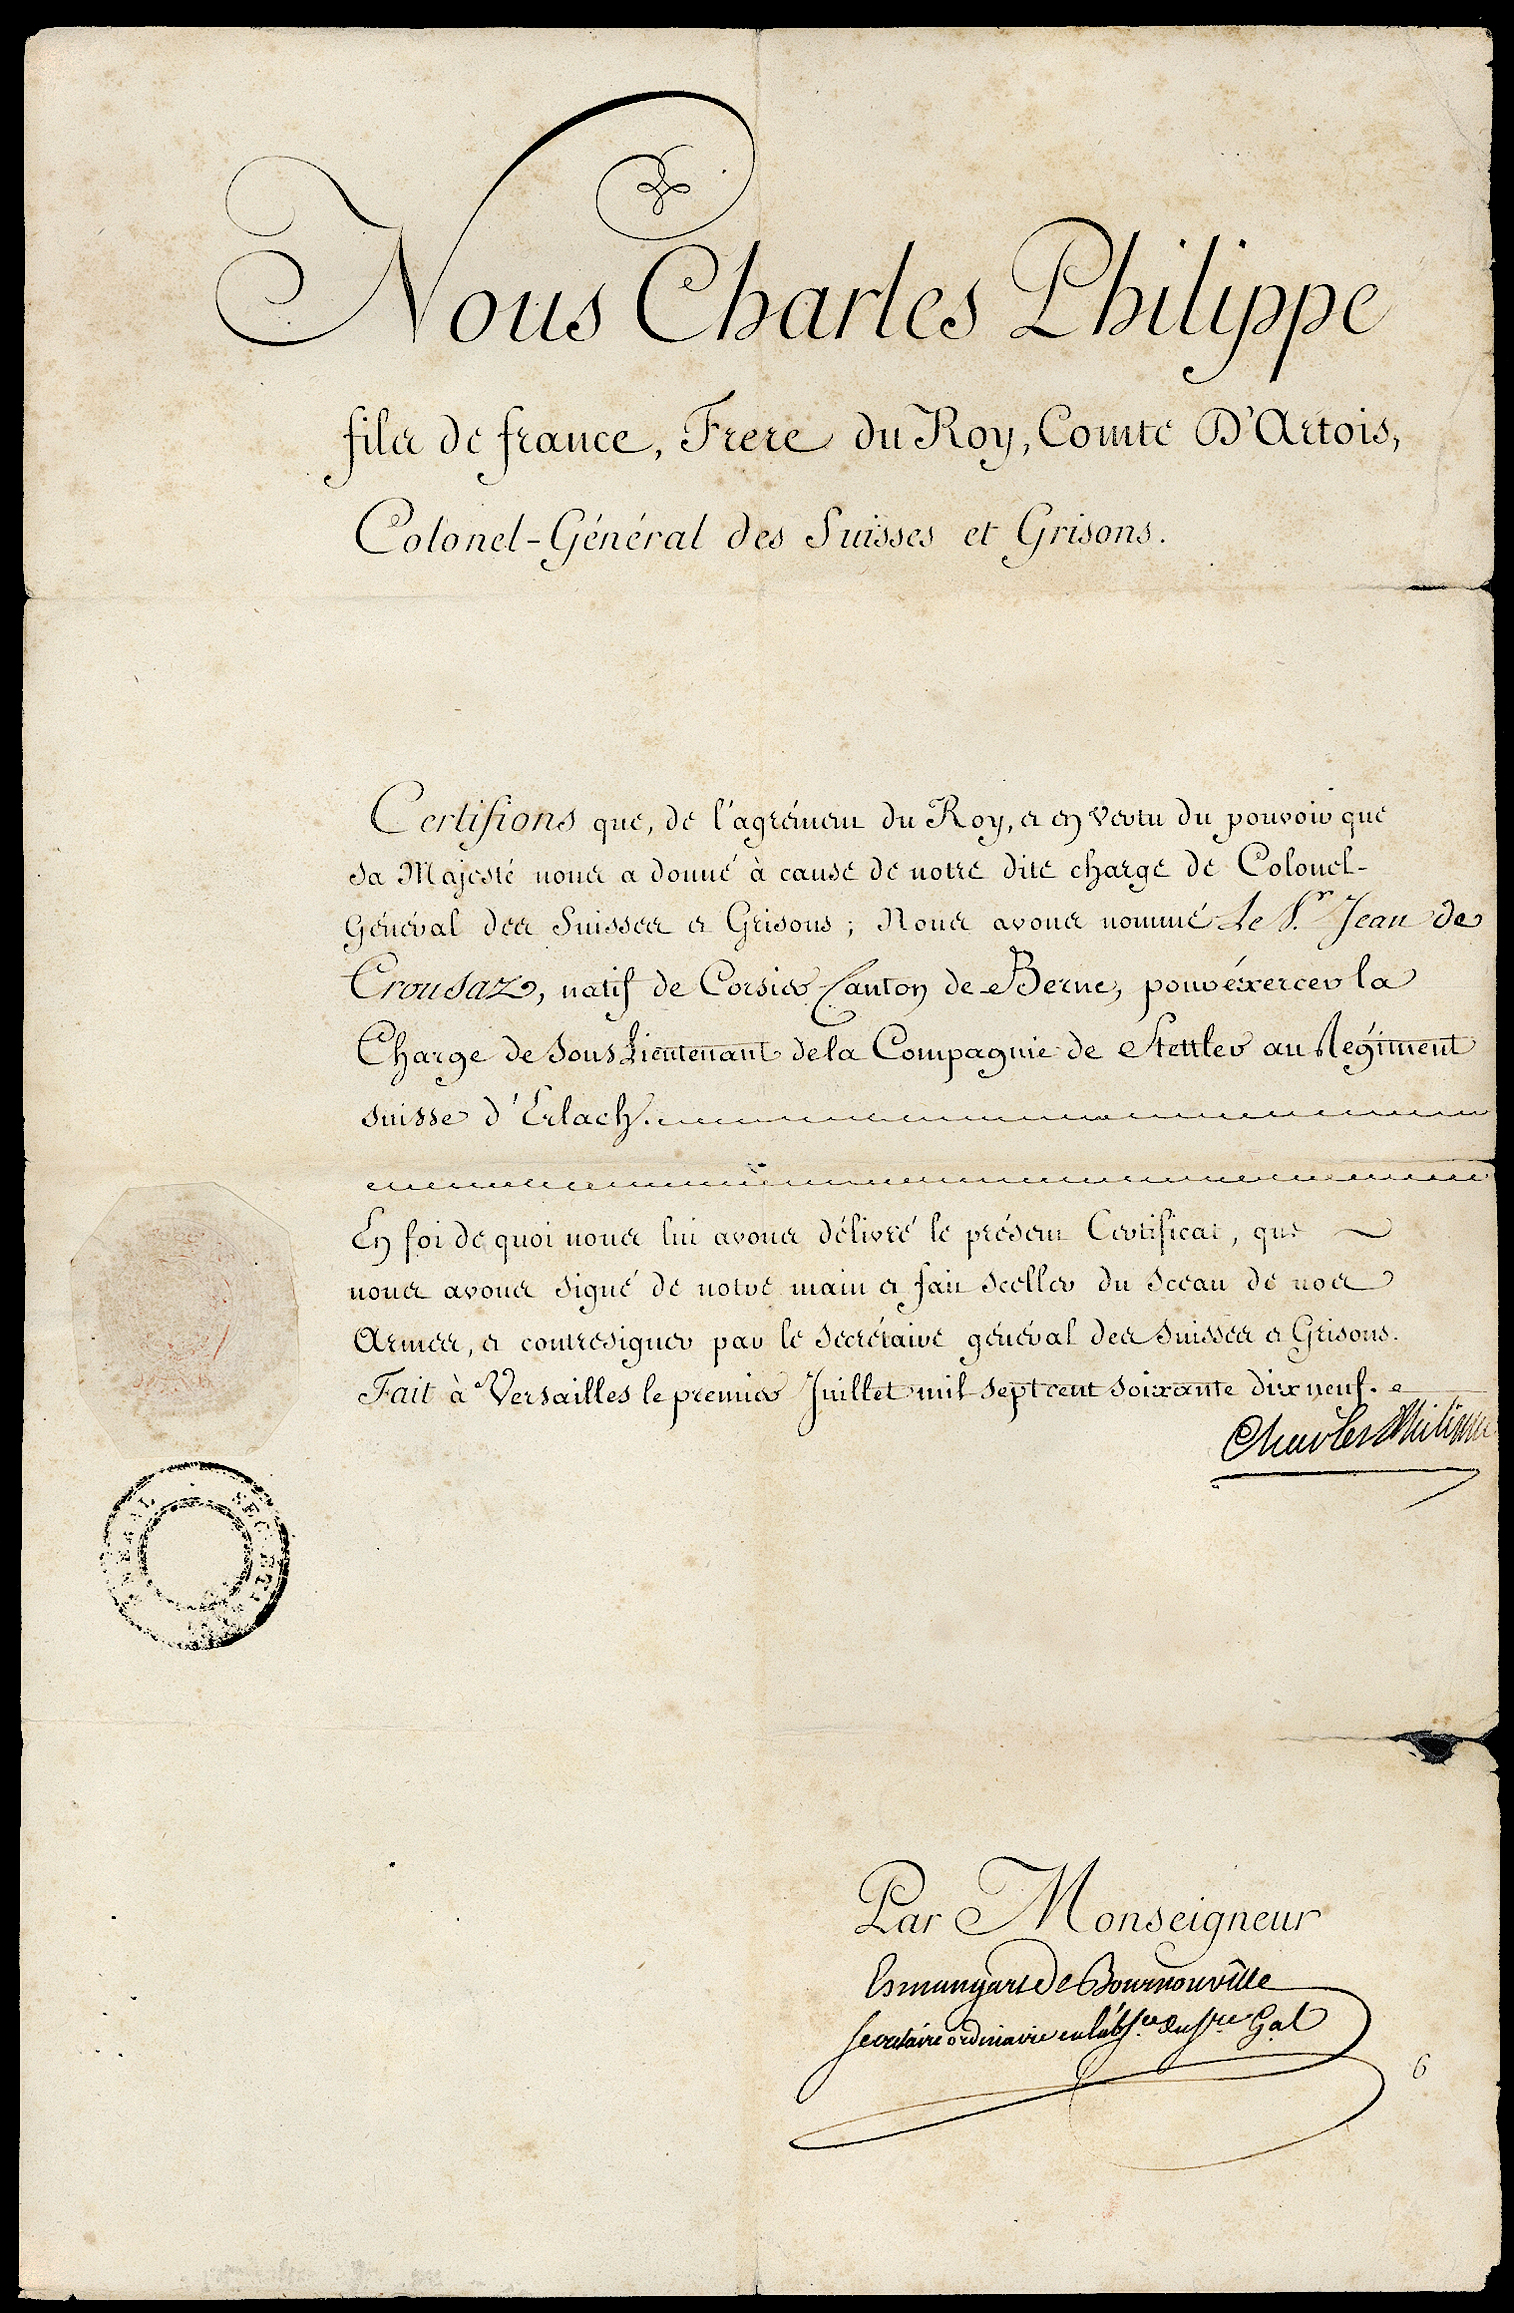 Nous Charles Philippe
fils de france, Frere du Roy, Comte D'Artois,
Colonel-Général des Suisses et Grisons.
Certifions que, de l'agrément du Roy, et en vertu du pouvoir que
sa Majesté nous a donné à cause de notre dite charge de Colonel-
Général des Suisses et Grisons ; Nous avons nommé Le S.r Jean de
Crousaz, natif de Corsier Canton de Berne, pour éxercer la
Charge de Sous Lieutenant de la Compagnie de Stettler au Régiment
suisse d'Erlach.
En foi de quoi nous lui avons délivré le présent Certificat, que
nous avons signé de notre main et fait sceller du Sceau de nos
Armes, et contresigner par le Secrétaire général des Suisses et Grisons.
Fait à Versailles le premier Juillet mil sept cent soixante dix neuf.
Charles Philippe
Par Monseigneur
Esmangart de Bournonville
Secretaire ordinaire en Gal
6